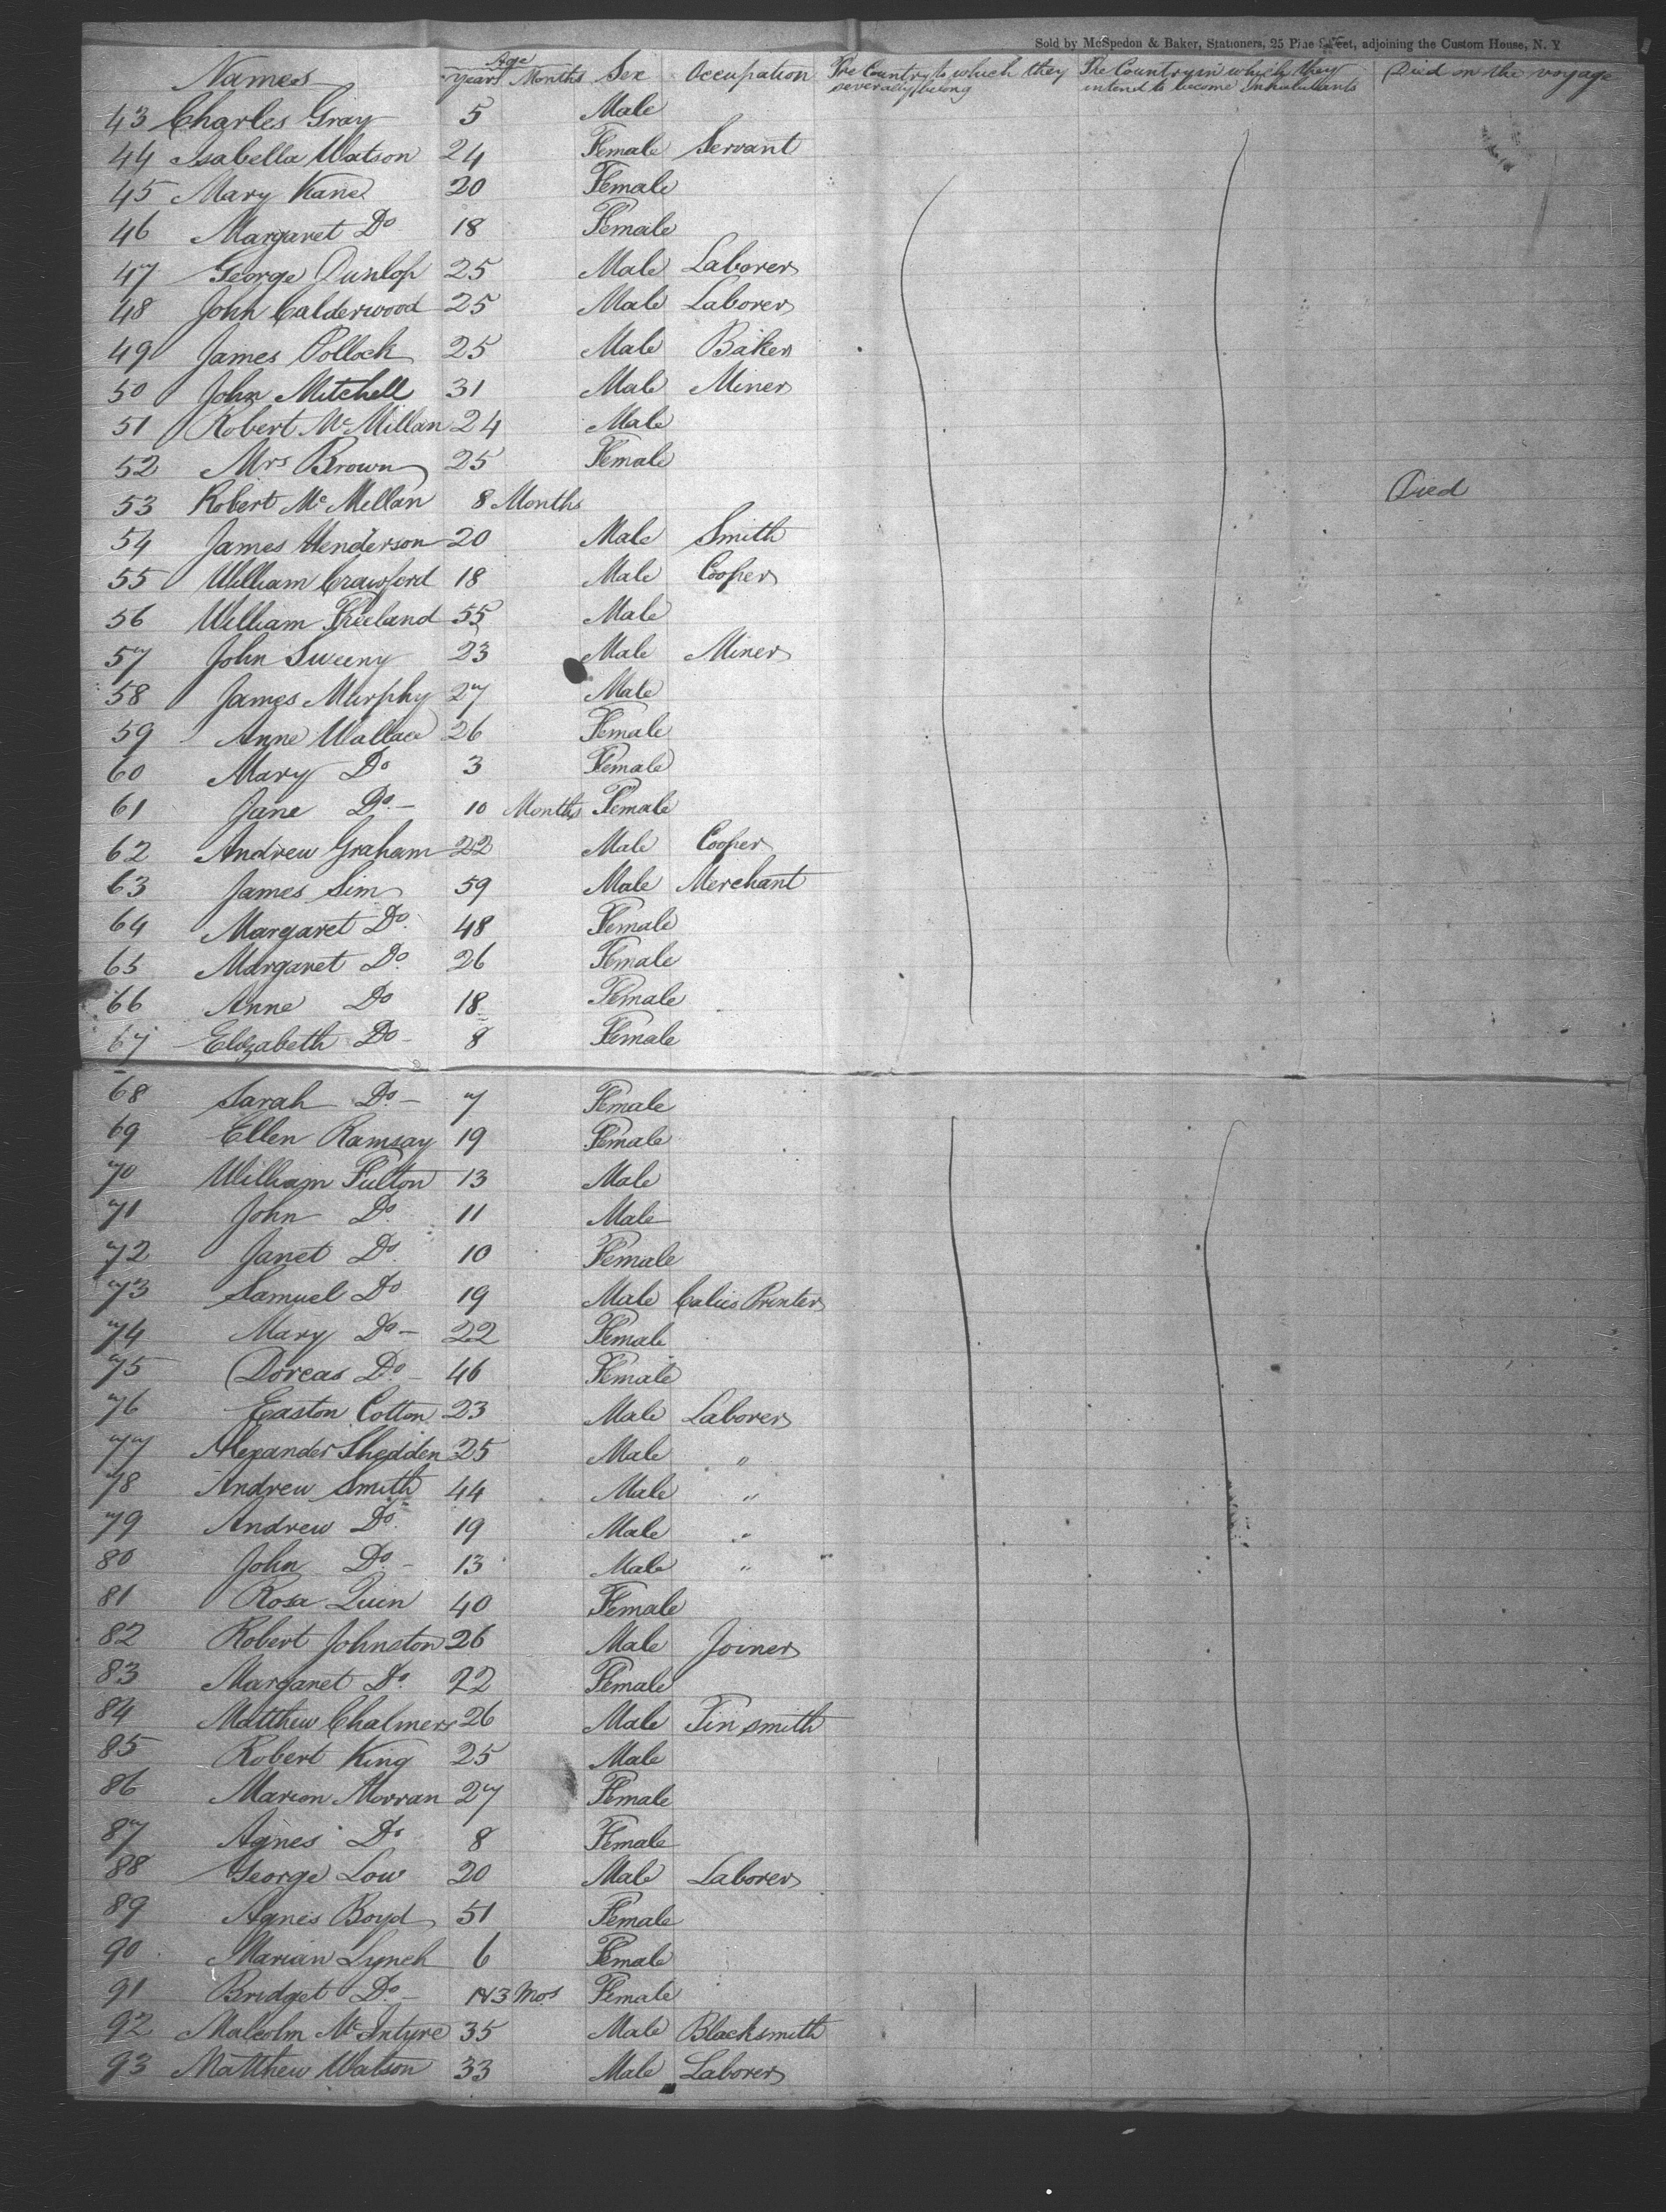 Sold by McSpedon & Baker, Stationers, 25 Pine Street, adjoining the Custom House, N. Y
Names Age Years Months Sex Occupation The Country to which they severally belong The Country in which they intend to become Inhabitants Died on the voyage
43 Charles Gray 5 Male
44 Isabella Watson 24 Female Servant
45 Mary Kane 20 Female
46 Margaret Do 18 Female
47 George Dunlop 25 Male Laborer
48 John Calderwood 25 Male Laborer
49 James Pollock 25 Male Baker
50 John Mitchell 31 Male Miner
51 Robert McMillan 24 Male
52 Mrs Brown 25 Female
53 Robert Mc Mellan 8 Months Died
54 James Henderson 20 Male Smith
55 William Crawford 18 Male Cooper
56 William Freeland 55 Male
57 John Sweeny 23 Male Miner
58 James Murphy 27 Male
59 Anne Wallace 26 Female
60 Mary Do 3 Female
61 Jane Do - 10 Months Female
62 Andrew Graham 22 Male Cooper
63 James Sim 59 Male Merchant
64 Margaret Do. 48 Female
65 Margaret Do. 26 Female
66 Anne Do 18 Female
67 Elizabeth Do - 8 Female
68 Sarah Do - 7 Female
69 Ellen Ramsay 19 Female
70 William Fulton 13 Male
71 John Do. 11 Male
72 Janet Do. 10 Female
73 Samuel Do 19 Male Calico Printer
74 Mary Do - 22 Female
75 Dorcas Do - 46 Female
76 Easton Cotton 23 Male Laborer
77 Alexander Shedden 25 Male "
78 Andrew Smith 44 Male "
79 Andrew Do. 19 Male "
80 John Do - 13 Male "
81 Rosa Quin 40 Female
82 Robert Johnston 26 Male Joiner
83 Margaret Do. 22 Female
84 Matthew Chalmers 26 Male Tin smith
85 Robert King 25 Male
86 Marion Morran 27 Female
87 Agnes Do 8 Female
88 George Low 20 Male Laborer
89 Agnes Boyd 51 Female
90 Marian Lynch 6 Female
91 Bridget Do - 3 Mos Female
92 Malcolm McIntyre 35 Male Blacksmith
93 Matthew Watson 33 Male Laborer